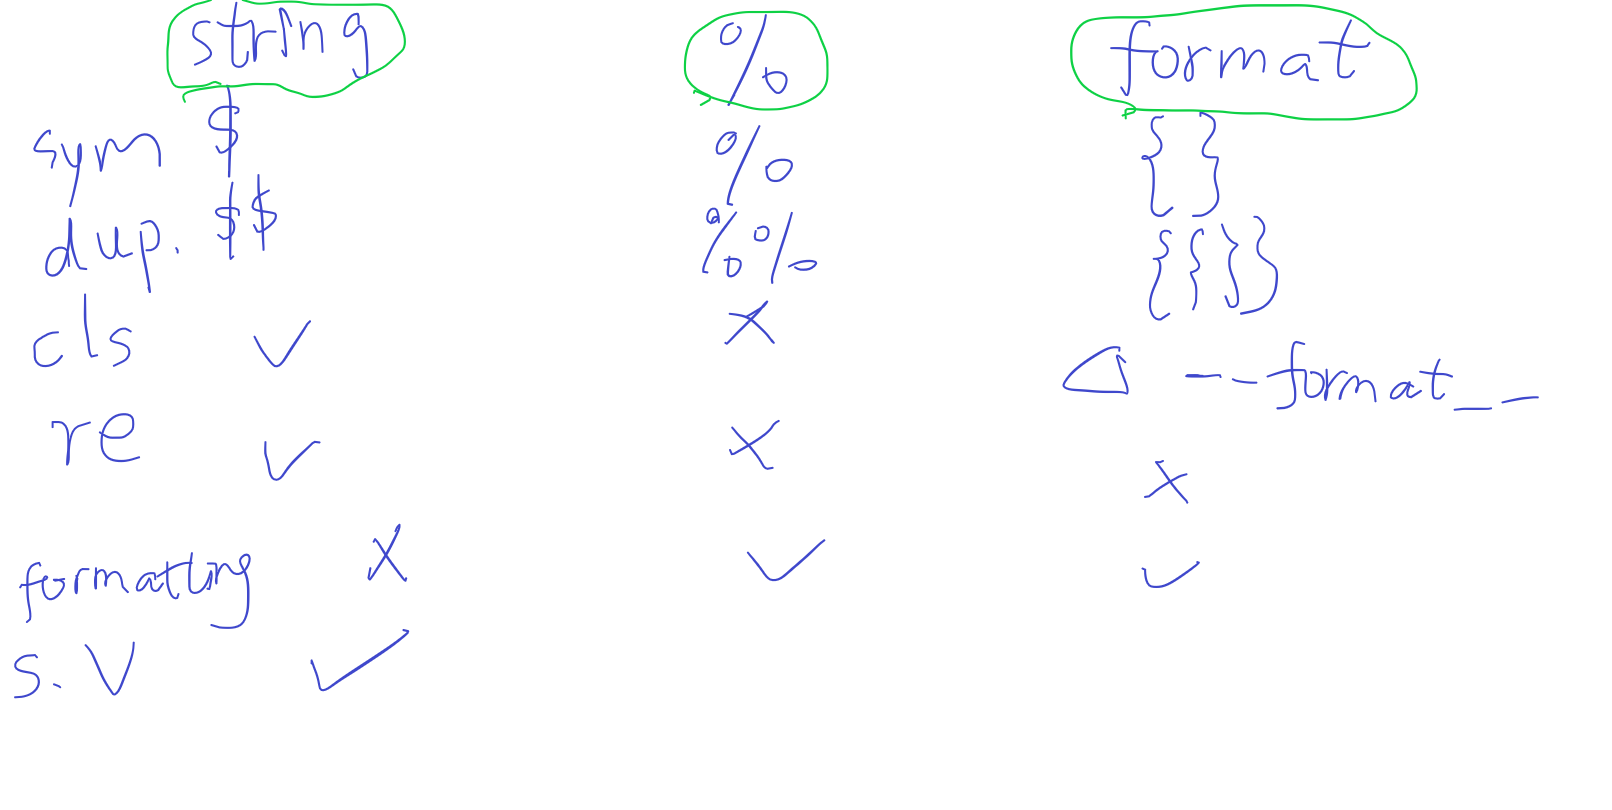 string % format
sym $ % { }
dup. $$ %% {{}}
cls ✓ × △ __format__
re ✓ × ×
formatting × ✓ ✓
s.v ✓